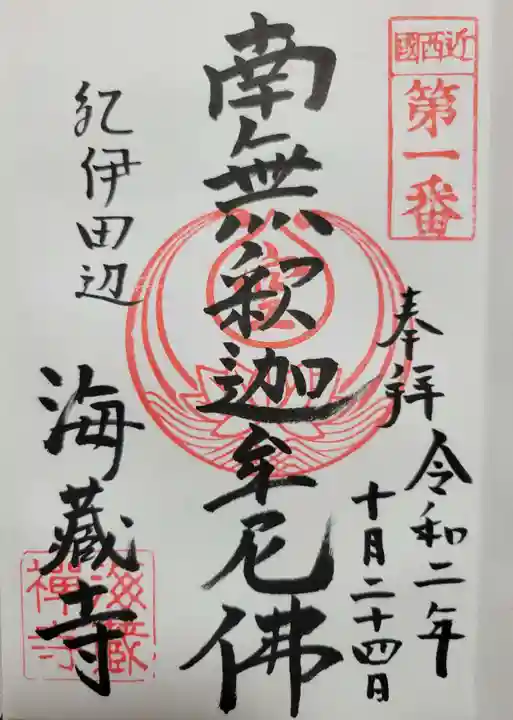 近西國
第一番
奉拝
令和二年
十月二十四日
南無釈迦牟尼佛
紀伊田辺
海蔵寺
海蔵
禅寺